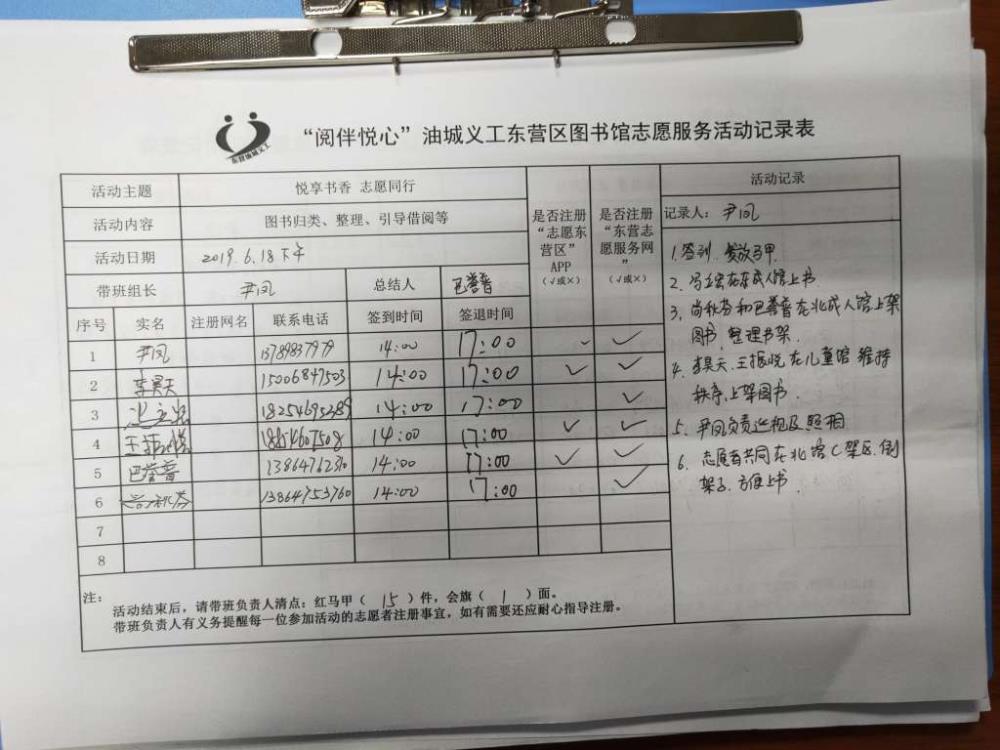 东营油城义工
“阅伴悦心”油城义工东营区图书馆志愿服务活动记录表
活动主题 悦享书香 志愿同行
活动内容 图书归类、整理、引导借阅等
活动日期 2019.6.18下午
带班组长 尹凤 总结人 巴誉普
是否注册“志愿东营区”APP（√或×）
是否注册“东营志愿服务网”（√或×）
序号 实名 注册网名 联系电话 签到时间 签退时间
1 尹凤 13789837979 14:00 17:00 ✓ ✓
2 李昊天 15006847503 14:00 17:00 ✓ ✓
3 18254695289 14:00 17:00 ✓
4 14:00 17:00 ✓ ✓
5 巴誉普 14:00 17:00 ✓ ✓
6 尚秋芬 13864753760 14:00 17:00 ✓
7
8
活动记录
记录人：尹凤
1.签到、发放马甲
2.在东成人馆上书
3.尚秋芬和巴誉普在北成人馆上架
图书，整理书架
4.李昊天、王振悦在儿童馆维持
秩序，上架图书
5.尹凤负责巡视及照相
6.志愿者共同在北馆C架区，倒
架子，方便上书
注：
活动结束后，请带班负责人清点：红马甲（15）件，会旗（1）面。
带班负责人有义务提醒每一位参加活动的志愿者注册事宜，如有需要还应耐心指导注册。